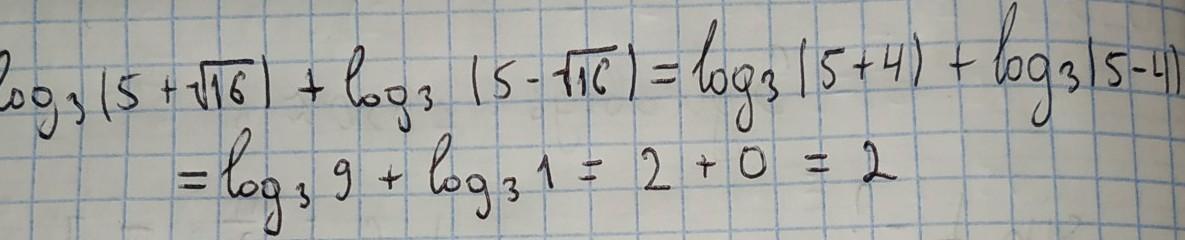 log₃(5+√16) + log₃(5-√16) = log₃(5+4) + log₃(5-4)
= log₃ 9 + log₃ 1 = 2 + 0 = 2